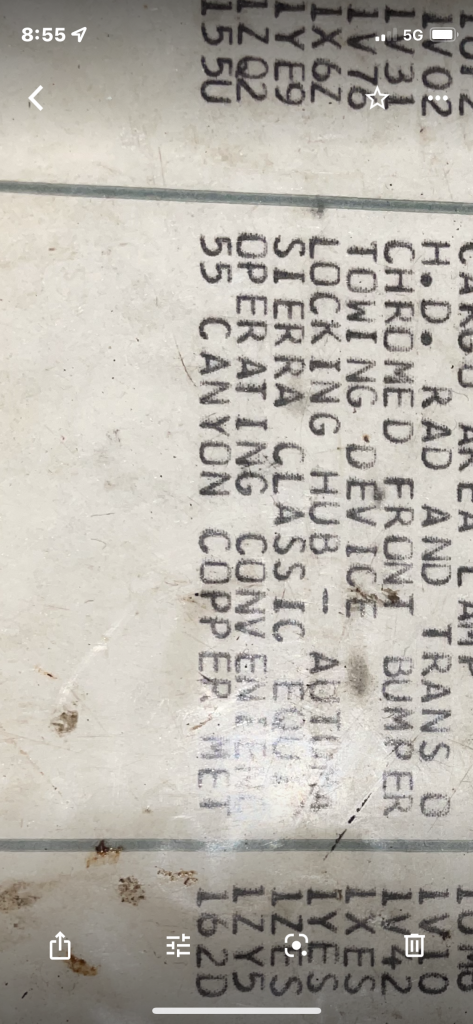 8:55 5G
CARGO AREA LAMP
1V02 H.D. RAD AND TRANS O 1V10
1V31 CHROMED FRONT BUMPER 1V42
1V76 TOWING DEVICE 1XES
1X6Z LOCKING HUB - AUTOMA 1YES
1YE9 SIERRA CLASSIC EQU. 1ZES
1ZQ2 OPERATING CONVENIENC 1ZY5
155U 55 CANYON COPPER MET 162D